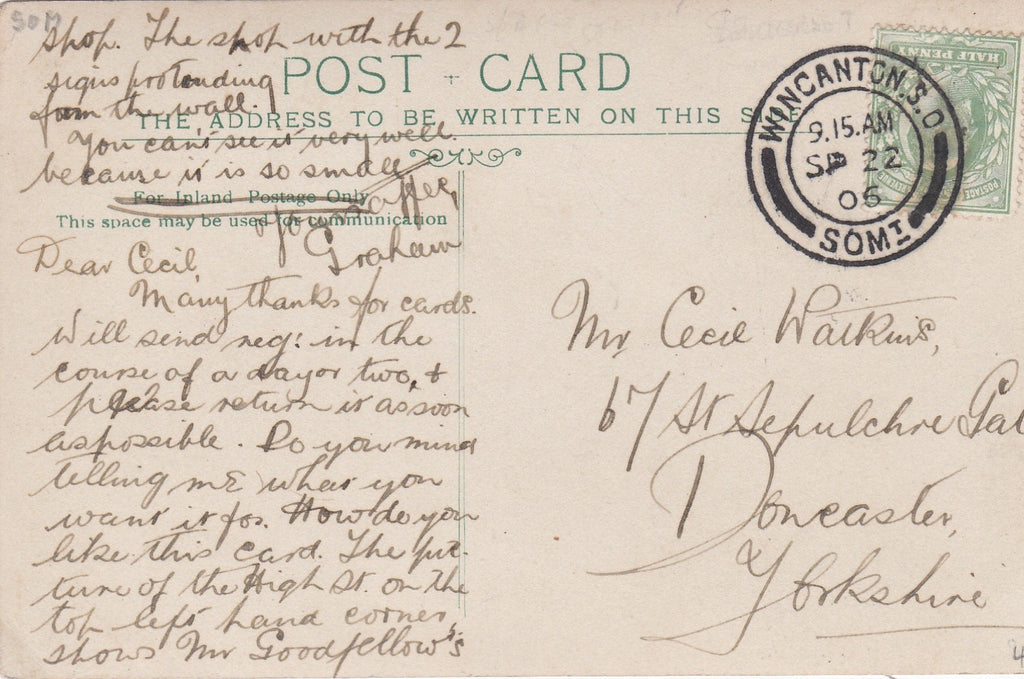 POST CARD
THE ADDRESS TO BE WRITTEN ON THIS SIDE
For Inland Postage Only
This space may be used for communication
Dear Cecil,
Many thanks for cards.
Will send neg: in the
course of a day or two, &
please return it as soon
as possible. Do you mind
telling me what you
want it for. How do you
like this card. The pic-
ture of the High St. on the
top left hand corner
shows Mr Goodfellow's
shop. The shop with the 2
signs protending
from the wall.
You can't see it very well
because it is so small
Graham
Mr Cecil Watkins,
67 St Sepulchre Gat
Doncaster,
Yorkshire
WINCANTON.S.O
9.15.AM
SP 22
06
SOMT
HALF PENNY
POSTAGE
SOM